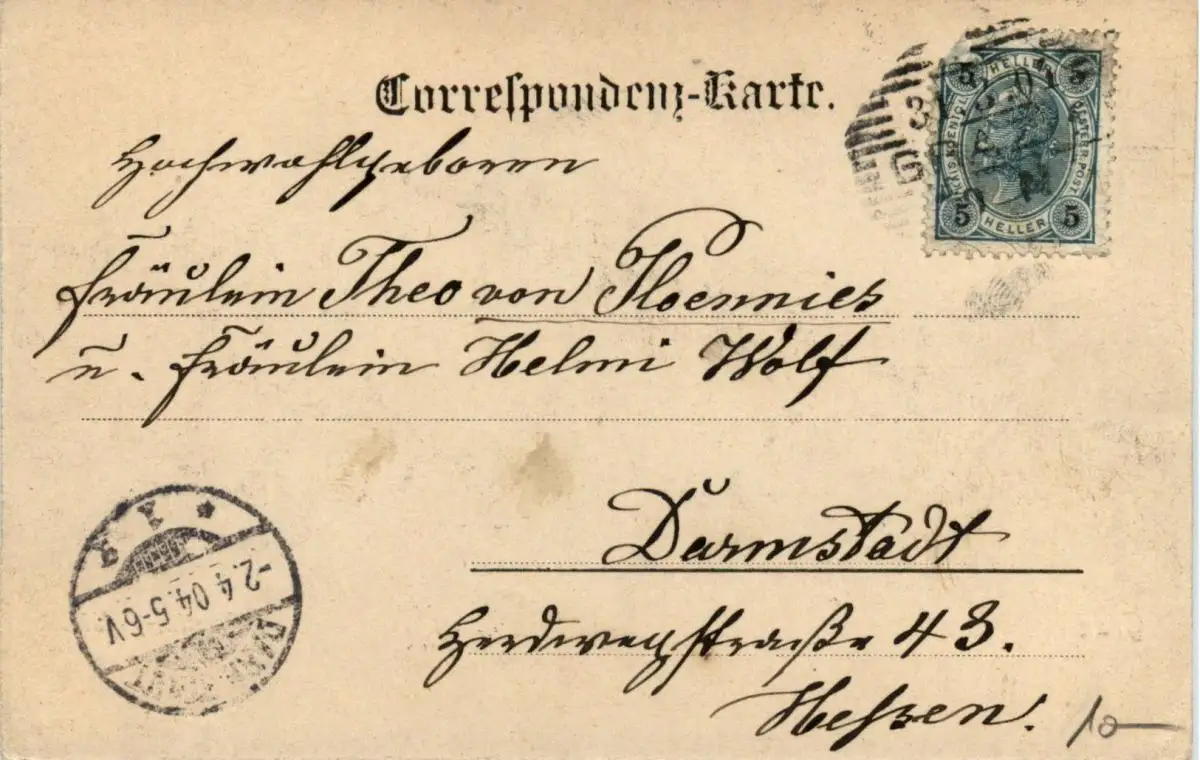 Correspondenz-Karte.
Hochwohlgeboren
Fräulein Theo von Ploennies
u. Fräulein Helmi Wolf
Darmstadt
Herdwegstraße 43.
Hessen.
10
5 HELLER 5
KAIS. KOENIGL. OESTERR. POST.
5 HELLER 5
-2.4.04.5-6V